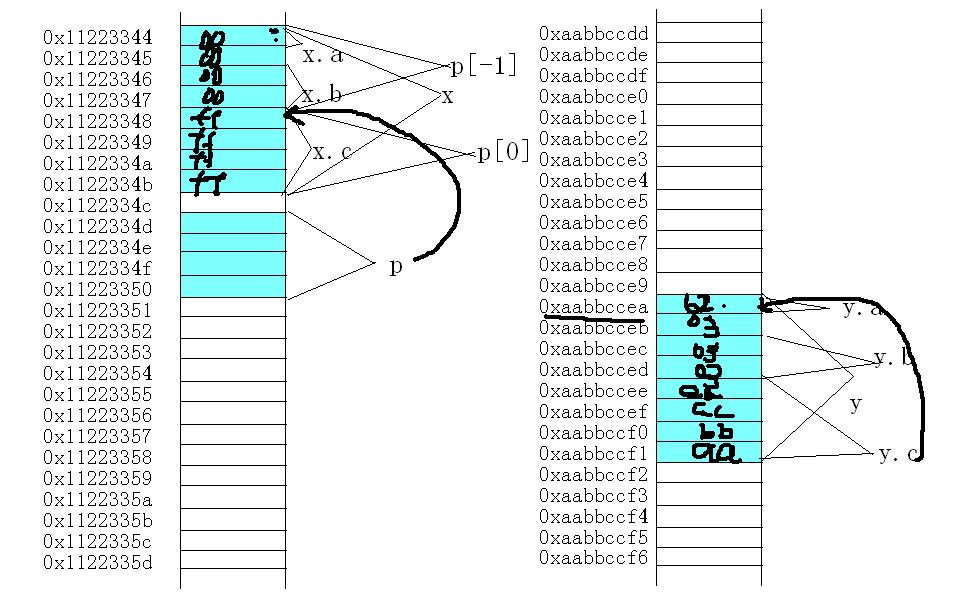 0x11223344 00
0x11223345 00
0x11223346 00
0x11223347 00
0x11223348 ff
0x11223349 ff
0x1122334a ff
0x1122334b ff
0x1122334c
0x1122334d
0x1122334e
0x1122334f
0x11223350
0x11223351
0x11223352
0x11223353
0x11223354
0x11223355
0x11223356
0x11223357
0x11223358
0x11223359
0x1122335a
0x1122335b
0x1122335c
0x1122335d
x.a
x.b
x.c
p[-1]
x
p[0]
p
0xaabbccdd
0xaabbccde
0xaabbccdf
0xaabbcce0
0xaabbcce1
0xaabbcce2
0xaabbcce3
0xaabbcce4
0xaabbcce5
0xaabbcce6
0xaabbcce7
0xaabbcce8
0xaabbcce9
0xaabbccea
0xaabbcceb
0xaabbccec
0xaabbcced
0xaabbccee
0xaabbccef cc
0xaabbccf0 bb
0xaabbccf1 aa
0xaabbccf2
0xaabbccf3
0xaabbccf4
0xaabbccf5
0xaabbccf6
y.a
y.b
y
y.c